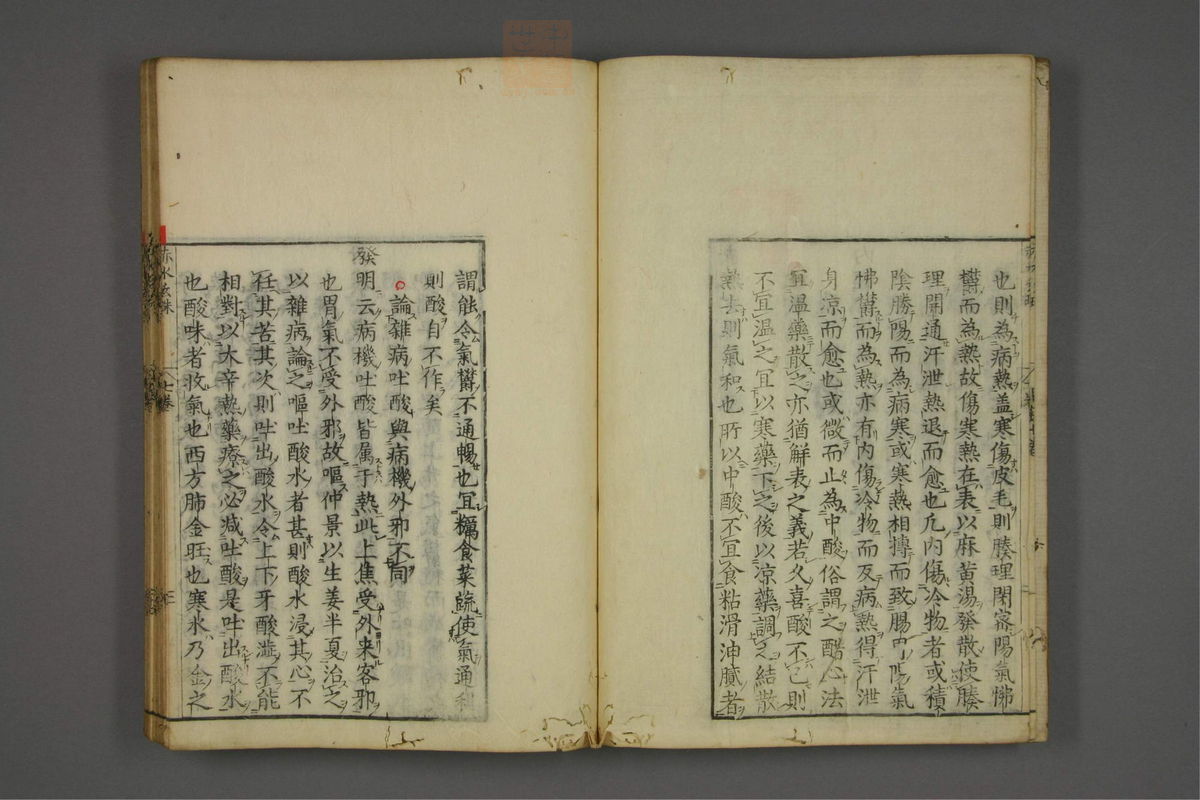 也則為病熱盖寒傷皮毛則腠理閉宻陽氣怫
欝而為熱故傷寒熱在表以麻黄湯發散使腠
理開通汗泄熱退而愈也凢内傷冷物者或積
陰勝陽而為病寒或寒熱相搏而致腸陽氣
怫欝而為熱亦有内傷冷物而反病熱得汗泄
身凉而愈也或微而止為中酸俗謂之醋心法
冝温藥散之亦猶解表之義若久喜酸不已則
不冝温之冝以寒藥下之後以凉藥調之結散
熱去則氣和也所以中酸不冝食粘滑油膩者
謂能令氣欝不通暢也冝糲食菜蔬使氣通利
則酸自不作矣
論雜病吐酸與病機外邪不同
發明云病機吐酸皆属于熱此上焦受外来客邪
也胃氣不受外邪故嘔仲景以生姜半夏治之
以雜病論之嘔吐酸水者甚則酸水浸其心不
任其苦其次則吐出酸水令上下牙酸澁不能
相對以大辛熱藥療之必减吐酸是吐出酸水
也酸味者收氣也西方肺金旺也寒水乃金之
赤水玄珠
七卷